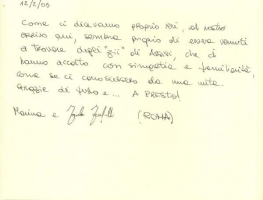 12/2/05
Come ci dicevamo proprio ieri, al nostro
arrivo qui, sembra proprio di essere venuti
a trovare degli "zii" di Assisi, che ci
hanno accolto con simpatia e familiarità,
come se ci conoscessero da una vita.
Grazie di tutto e... A PRESTO!
Marina e (ROMA)